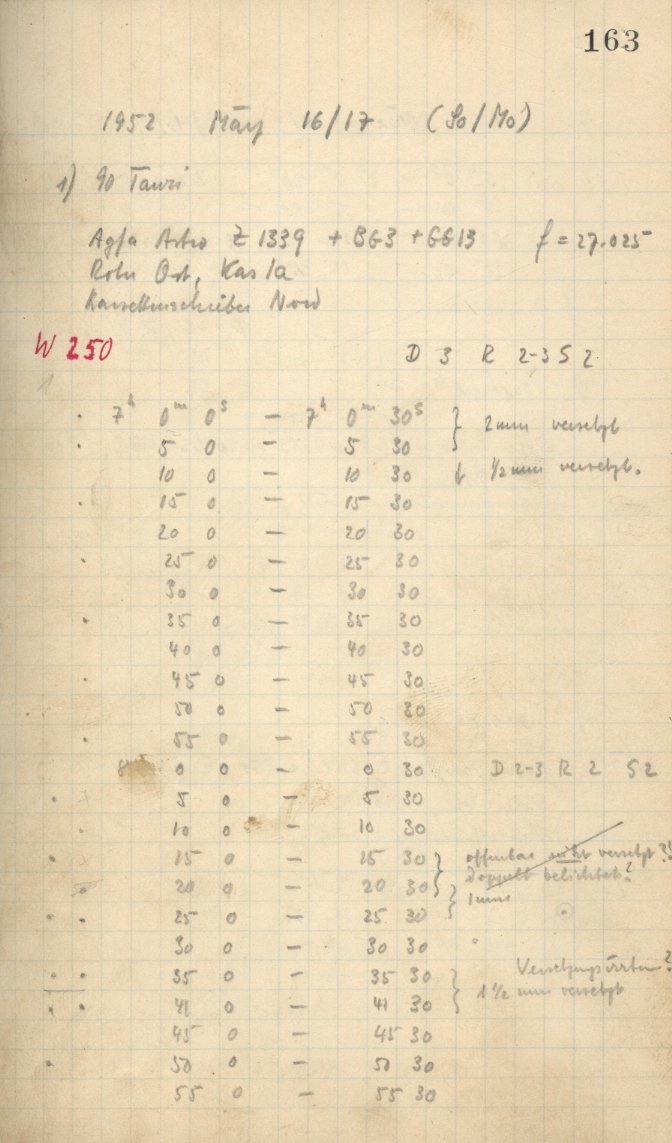 163
1952 März 16/17 (So/Mo)
1) 90 Tauri
Agfa Astro Z 1339 + BG3 + GG13 f = 27.025
Rohr Ost, Kas 1a
Kassettenschieber Nord
W 250
D 3 R 2-3 S 2
1
7h 0m 0s — 7h 0m 30s } 2mm versetzt
5 0 — 5 30
10 0 10 30 1/2 mm versetzt.
15 0 — 15 30
20 0 — 20 30
25 0 — 25 30
30 0 — 30 30
35 0 — 35 30
40 0 — 40 30
45 0 — 45 30
50 0 — 50 30
55 0 — 55 30
8 0 0 — 0 30 D 2-3 R 2 S 2
5 0 — 5 30
10 0 — 10 30
15 0 — 15 30 } offenbar nicht versetzt?!
doppelt belichtet?
20 0 — 20 30 } 1mm
25 0 — 25 30
30 0 — 30 30
35 0 — 35 30 } Versetzungsirrtum?
1 1/2 mm versetzt
41 0 — 41 30
45 0 — 45 30
50 0 — 50 30
55 0 — 55 30